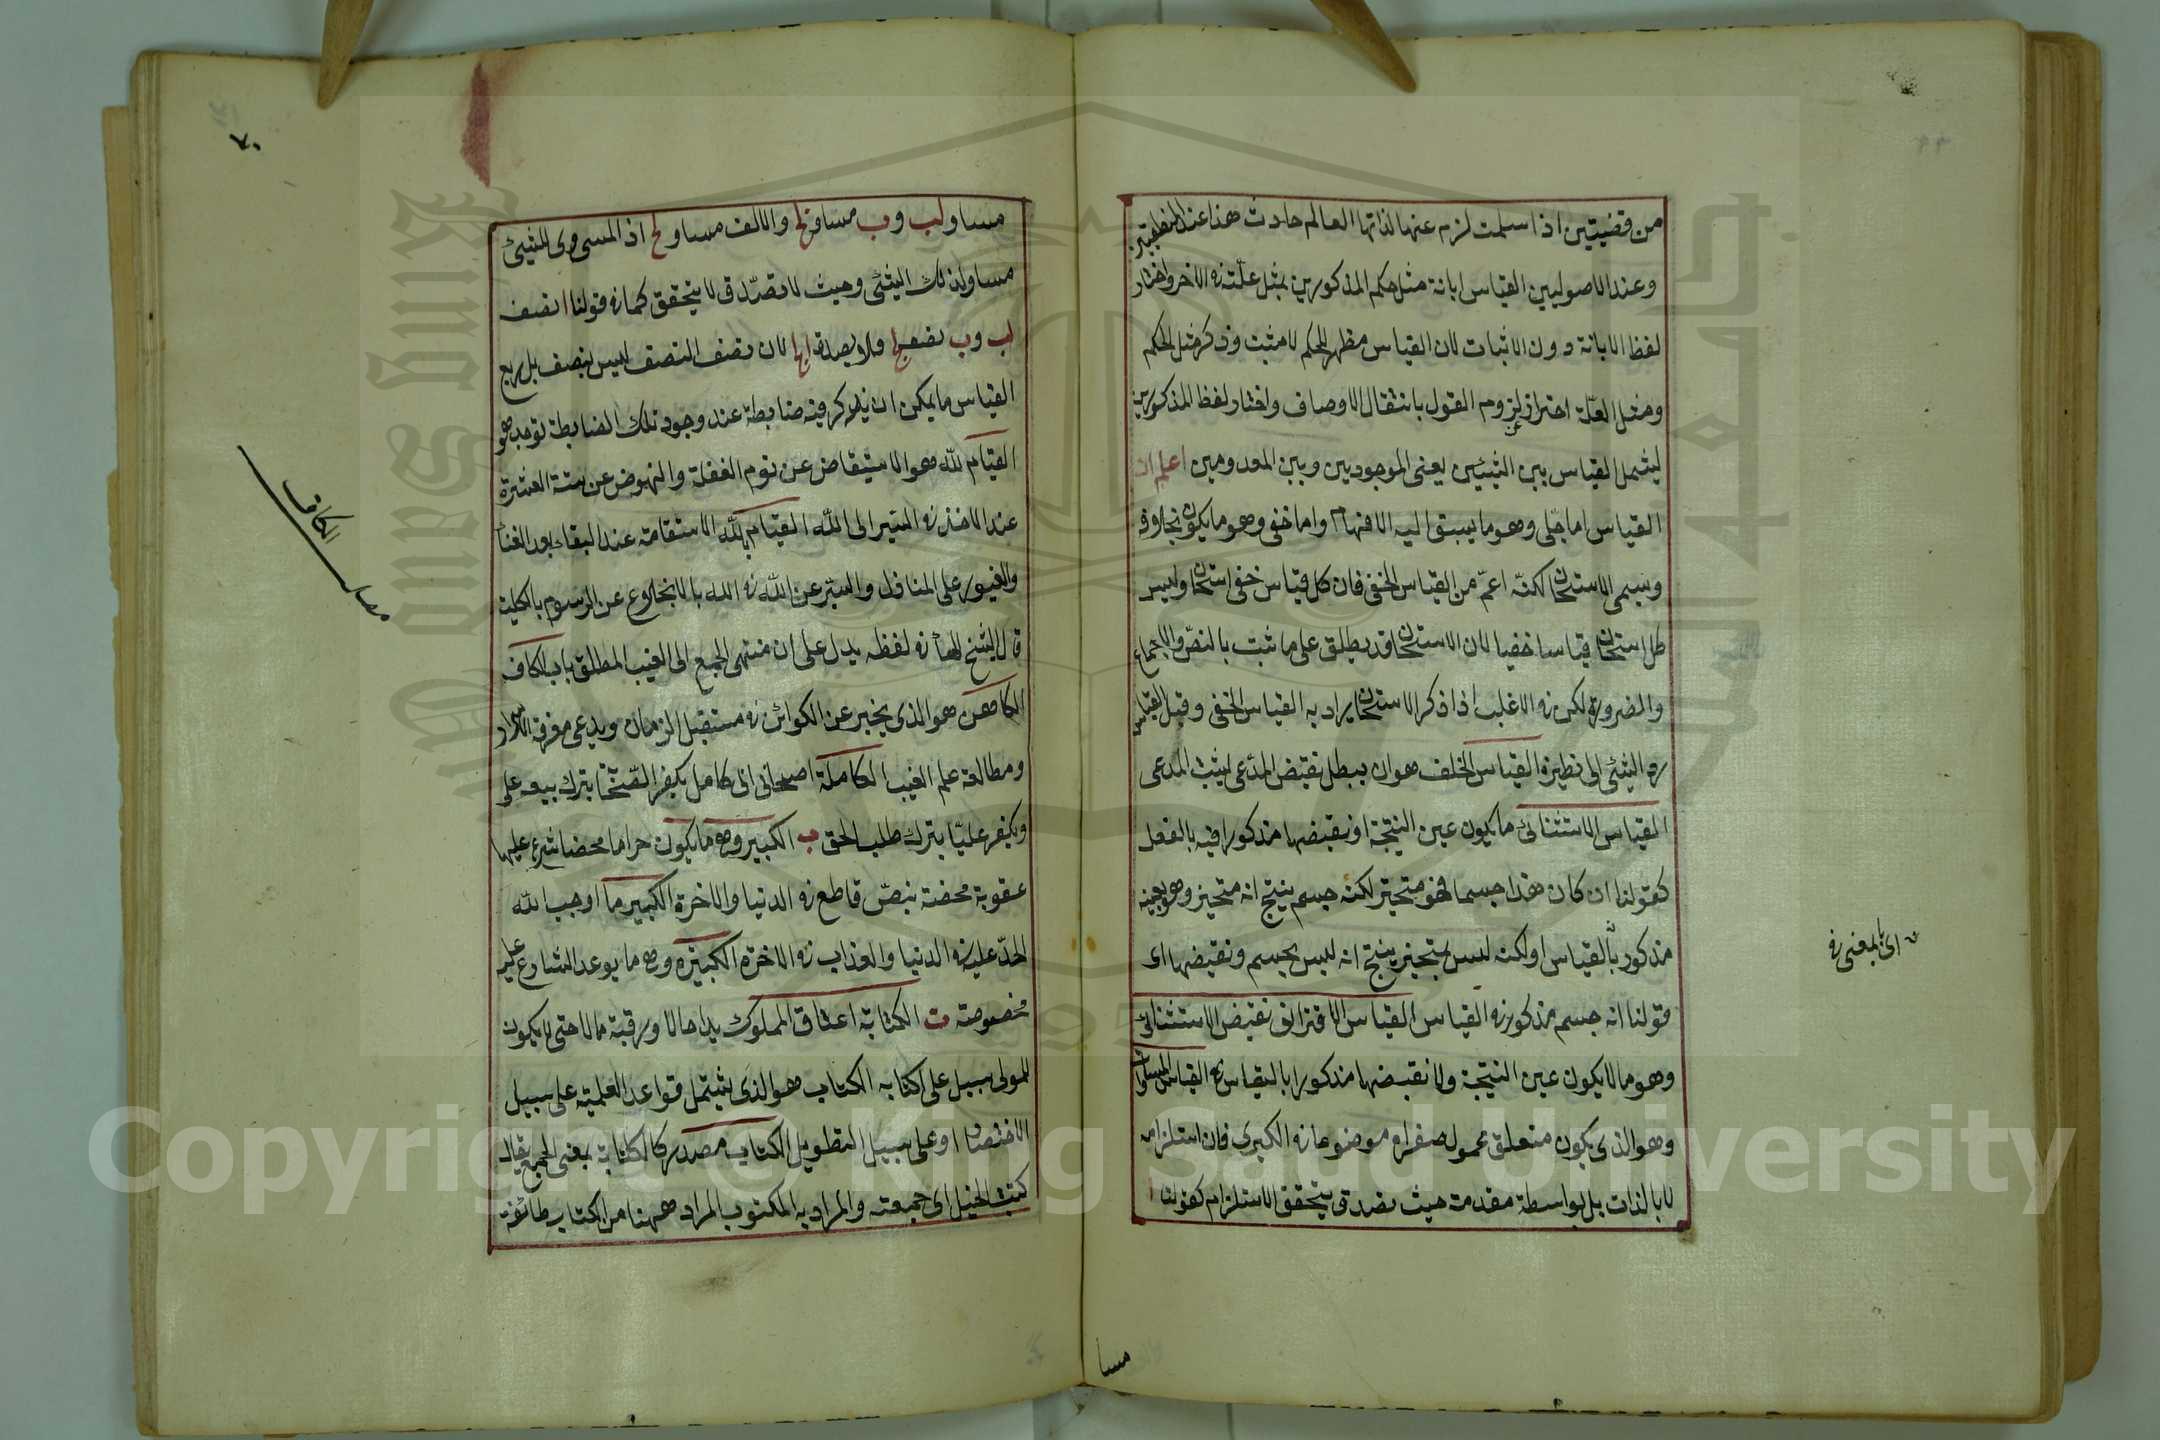 من قضيتين اذا سلمت لزم عنها لذاتها العالم حادث هذا عند المنطقيين
وعند الاصوليين القياس ابانة مثل حكم المذكورين بمثل علته في الاخر واختار
لفظ الابانة دون الاثبات لان القياس مظهر للحكم لا مثبت وذكر مثل الحكم
ومثل العلة احتراز عن لزوم القول بانتقال الاوصاف واختار لفظ المذكورين
ليشمل القياس بين الشيئين يعني الموجودين وبين المعدومين اعلم ان
القياس اما جلي وهو ما يسبق اليه الافهام واما خفي وهو ما يكون بخلافه
ويسمى الاستحسان لكنه اعم من القياس الخفي فان كل قياس خفي استحسان وليس
كل استحسان قياسا خفيا لان الاستحسان قد يطلق على ما ثبت بالنص والاجماع
والضرورة لكن في الاغلب اذا ذكر الاستحسان يراد به القياس الخفي وقيل القياس
رد الشيء الى نظيره القياس الخلف هو ان يبطل نقيض المدعى ليثبت المدعى
القياس الاستثنائي ما يكون عين النتيجة او نقيضها مذكورا فيه بالفعل
كقولنا ان كان هذا جسما فهو متحيز لكنه جسم ينتج انه متحيز وهو بعينه
مذكور بالقياس او لكنه ليس بمتحيز ينتج انه ليس بجسم ونقيضها اي
قولنا انه جسم مذكور في القياس القياس الاقتراني نقيض الاستثنائي
وهو ما لا يكون عين النتيجة ولا نقيضها مذكورا بالقياس فيه القياس المساوات
وهو الذي يكون متعلق محمول صغراه موضوعا في الكبرى فان استلزامه
لا بالذات بل بواسطة مقدمة حيث تصدق يتحقق الاستلزام كقولنا ا
اي بالمعنى فيه
مسا
٧٠
مساو لب وب مساو لج والالف مساو لج اذ المساوي للشيئ
مساو لذلك الشيئ وحيث لا تصدق لا يتحقق كما في قولنا ا نصف
لب وب نصف لج فلا يصدق ا لج لان نصف النصف ليس بنصف بل ربع
القياس ما يمكن ان يذكر فيه ضابطة عند وجود تلك الضابطة توجد هو
القيام لله هو الاستيقاض عن نوم الغفلة والنهوض عن سنة العشرة
عند الاخذ في السير الى الله القيام بالله الاستقامة عند البقاء بعد الفناء
والعبور على المنازل والسير عن الله في الله بالانخلاع عن الرسوم بالكلية
قال الشيخ الهاء في لفظه يدل على ان منتهى الجمع الى الغيب المطلق باب الكاف
الكاهن هو الذي يخبر عن الكوائن في مستقبل الزمان ويدعي معرفة الاسرار
ومطالعة علم الغيب الكاملة اصحاب ابي كامل يكفر الصحابة بترك بيعة علي
ويكفر عليا بترك طلب الحق ب الكبيرة وهي ما يكون حراما محضا شرع عليها
عقوبة محضة بنص قاطع في الدنيا والاخرة الكبير ما اوجب الله
الحد عليه في الدنيا والعذاب في الاخرة الكبيرة وهي ما يوعد الشارع عليه
مخصوصة ت الكتابة اعتاق المملوك يدا حالا ورقبة مالا حتى لا يكون
للمولى سبيل على اكتابه الكتاب هو الذي يشتمل قواعد العلمية على سبيل
الاختصار او على سبيل التطويل الكتاب مصدر كالكتابة بمعنى الجمع يقال
كتبت الخيل اي جمعته والمراد به المكتوب المراد ههنا من الكتاب طائفة
الكاف